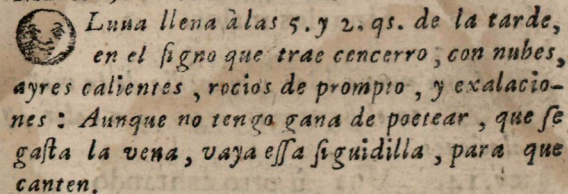 Luna llena à las 5. y 2. qs. de la tarde,
en el ſigno que trae cencerro, con nubes,
ayres calientes, rocios de prompto, y exalacio-
nes: Aunque no tengo gana de poetear, que ſe
gaſta la vena, vaya eſſa ſiguidilla, para que
canten.